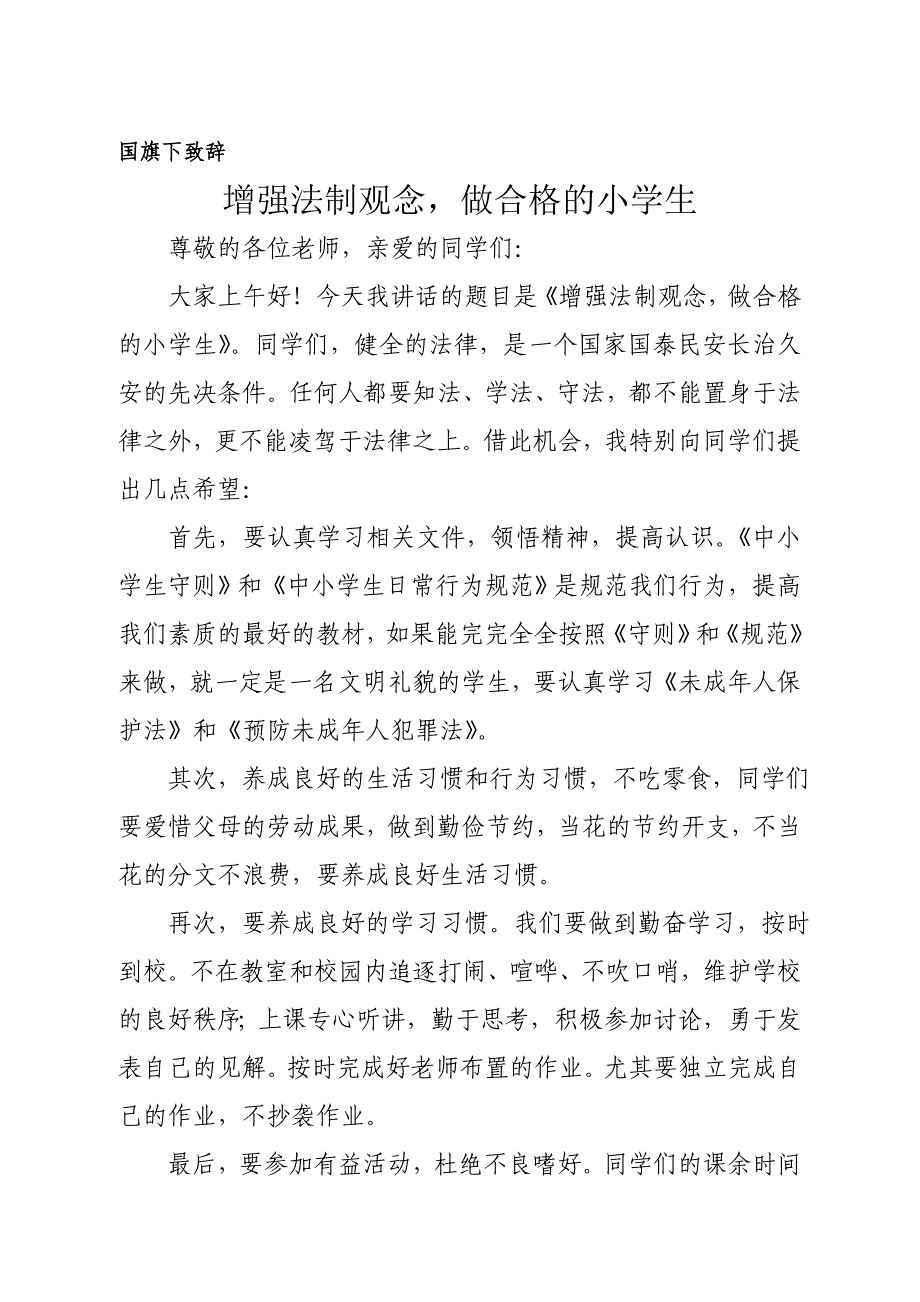 国旗下致辞
增强法制观念，做合格的小学生
尊敬的各位老师，亲爱的同学们：
大家上午好！今天我讲话的题目是《增强法制观念，做合格
的小学生》。同学们，健全的法律，是一个国家国泰民安长治久
安的先决条件。任何人都要知法、学法、守法，都不能置身于法
律之外，更不能凌驾于法律之上。借此机会，我特别向同学们提
出几点希望：
首先，要认真学习相关文件，领悟精神，提高认识。《中小
学生守则》和《中小学生日常行为规范》是规范我们行为，提高
我们素质的最好的教材，如果能完完全全按照《守则》和《规范》
来做，就一定是一名文明礼貌的学生，要认真学习《未成年人保
护法》和《预防未成年人犯罪法》。
其次，养成良好的生活习惯和行为习惯，不吃零食，同学们
要爱惜父母的劳动成果，做到勤俭节约，当花的节约开支，不当
花的分文不浪费，要养成良好生活习惯。
再次，要养成良好的学习习惯。我们要做到勤奋学习，按时
到校。不在教室和校园内追逐打闹、喧哗、不吹口哨，维护学校
的良好秩序；上课专心听讲，勤于思考，积极参加讨论，勇于发
表自己的见解。按时完成好老师布置的作业。尤其要独立完成自
己的作业，不抄袭作业。
最后，要参加有益活动，杜绝不良嗜好。同学们的课余时间